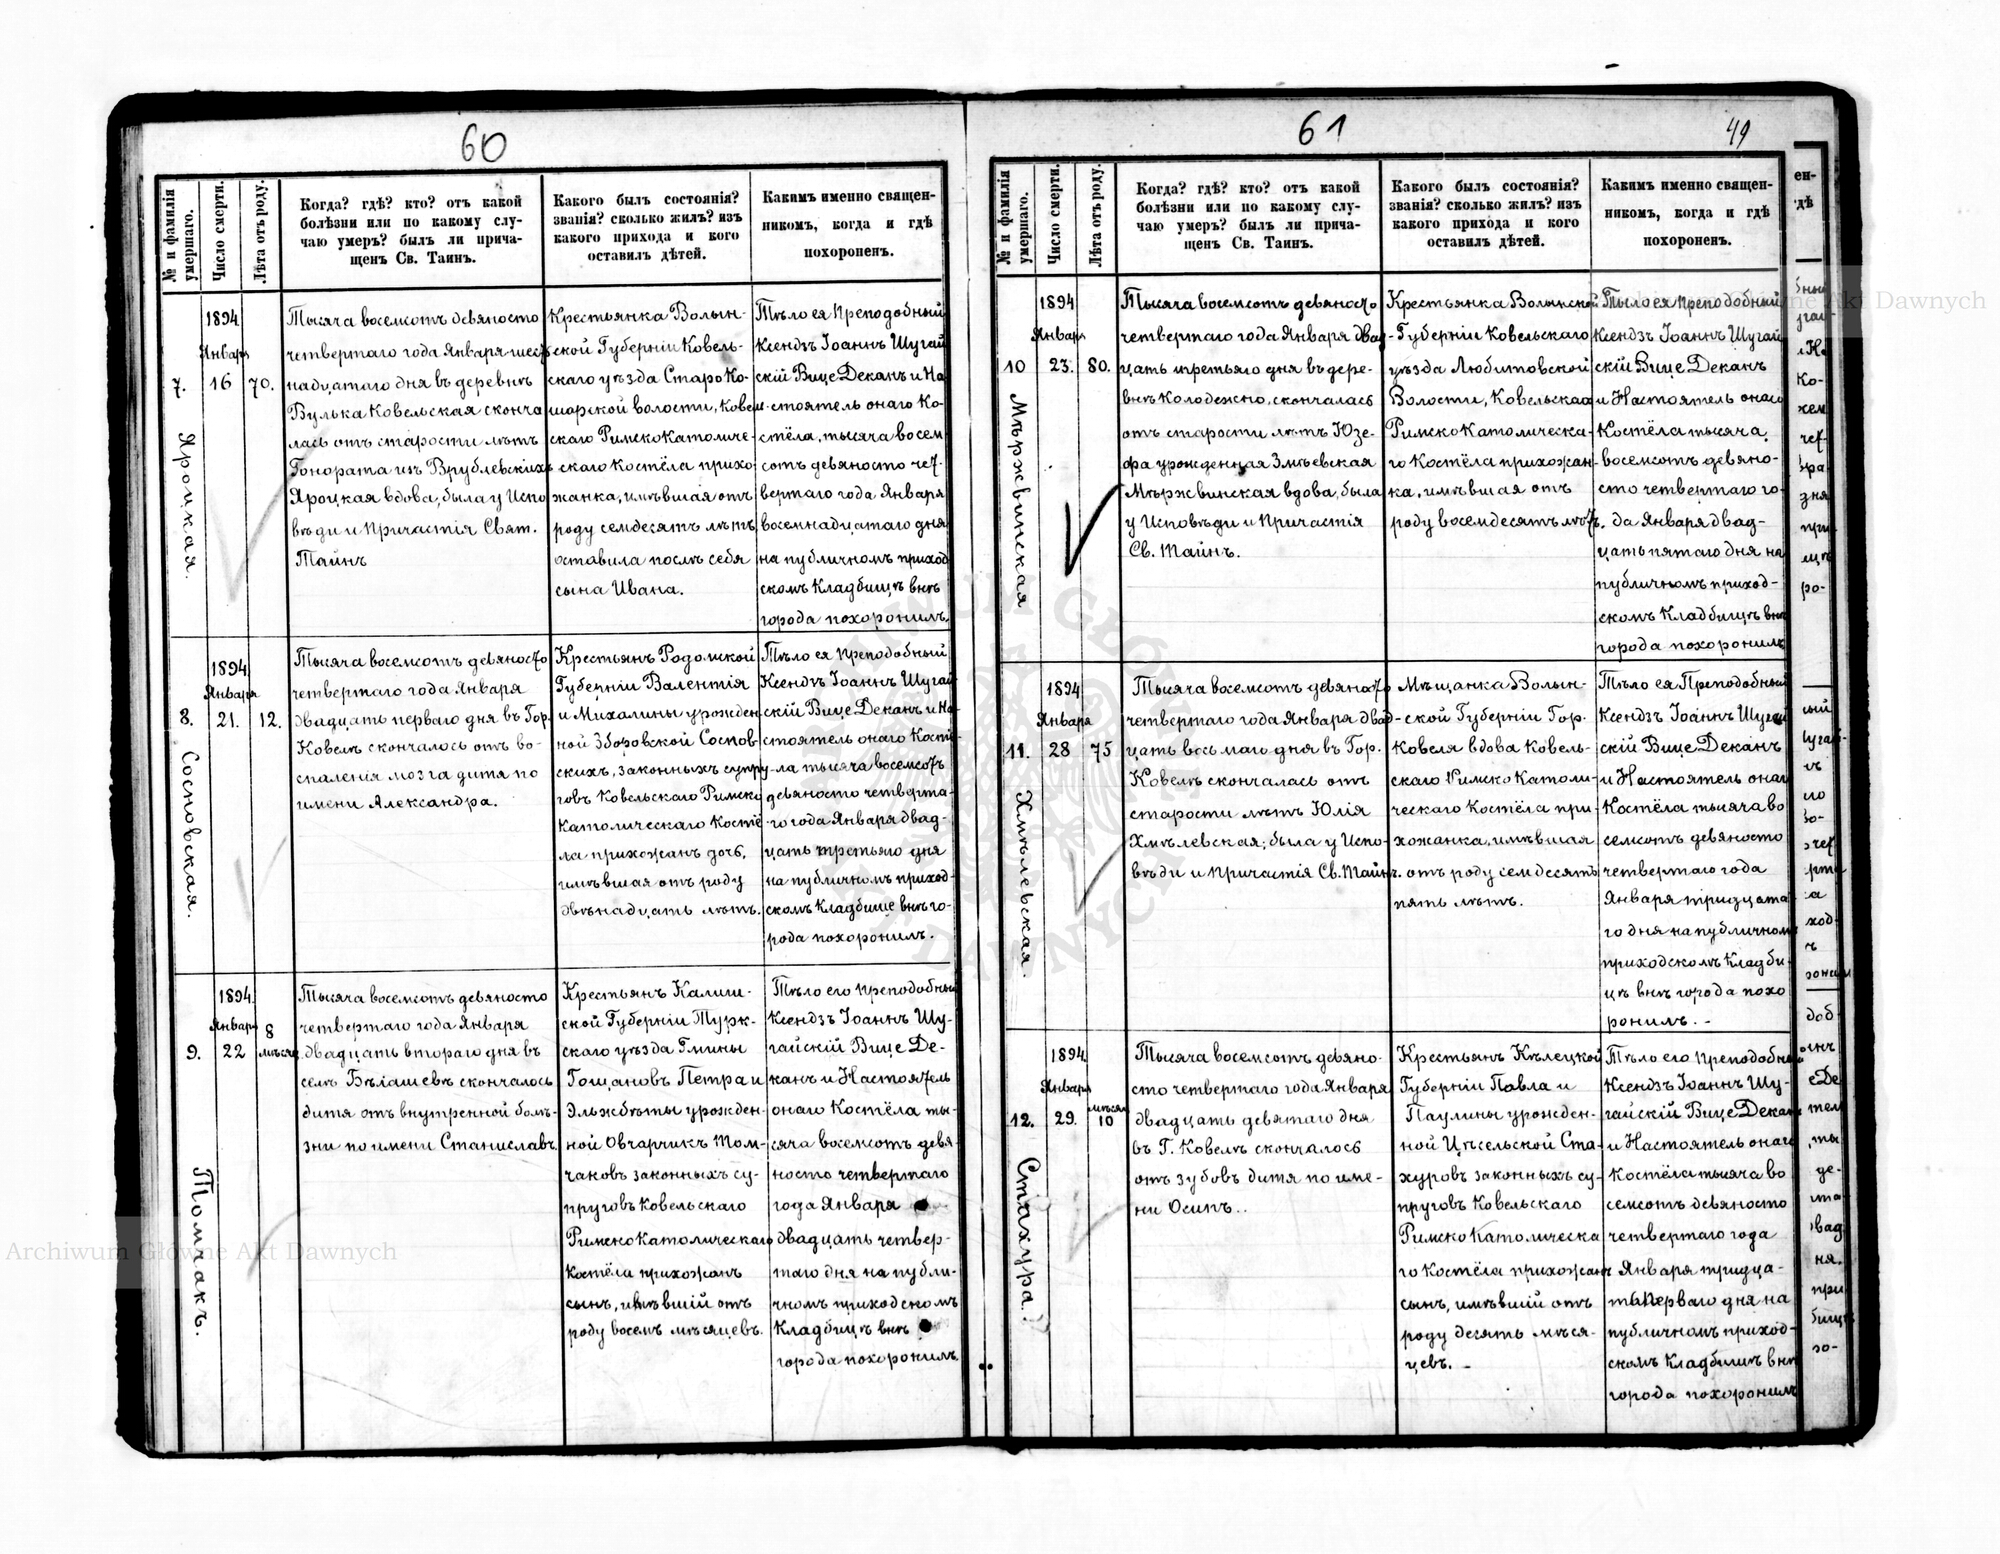 60
№ и фамилія умершаго.
Число смерти.
Лѣта отъ роду.
Когда? гдѣ? кто? отъ какой
болѣзни или по какому слу-
чаю умеръ? былъ ли прича-
щенъ Св. Таинъ.
Какого былъ состоянія?
званія? сколько жилъ? изъ
какого прихода и кого
оставилъ дѣтей.
Какимъ именно священ-
никомъ, когда и гдѣ
похороненъ.
7.
Яроцкая.
1894
Января
16
70.
Тысяча восемсотъ девяносто
четвертаго года Января шест
надцатаго дня въ деревнѣ
Вулька Ковельская сконча
лась отъ старости лѣтъ
Гонората изъ Врублевскихъ
Яроцкая вдова, была у Испо
вѣди и Причастія Свят.
Тайнъ
Крестьянка Волын-
ской Губерніи Ковель-
скаго уѣзда Старо Ко-
шарской волости, Ковель
скаго Римско Католиче-
скаго Костёла прихо
жанка, имѣвшая отъ
роду семдесятъ лѣтъ,
оставила послѣ себя
сына Ивана.
Тѣло ея Преподобный
Ксендзъ Іоаннъ Шугай
скій Вице Деканъ и На
стоятель онаго Ко-
стёла, тысяча восем
сотъ девяносто чет-
вертаго года Января
восемнадцатаго дня
на публичномъ приход
скомъ Кладбищѣ внѣ
города похоронилъ.
8.
Сосновская.
1894
Января
21.
12.
Тысяча восемсотъ девяносто
четвертаго года Января
двадцать перваго дня въ Гор.
Ковелѣ скончалось отъ во-
спаленія мозга дитя по
имени Александра.
Крестьянъ Родомской
Губерніи Валентія
и Михалины урожден
ной Зборовской Соснов
скихъ, законныхъ супру
говъ Ковельскаго Римско
Католическаго Костё
ла прихожанъ дочь,
имѣвшая отъ роду
двѣнадцать лѣтъ.
Тѣло ея Преподобный
Ксендзъ Іоаннъ Шугай
скій Вице Деканъ и На-
стоятель онаго Костё-
ла тысяча восемсотъ
девяносто четверта-
го года Января двад-
цать третьяго дня
на публичномъ приход-
скомъ Кладбище внѣ го-
рода похоронилъ.
9.
Томчакъ.
1894
Января
22
8
мѣсяц.
Тысяча восемсотъ девяносто
четвертаго года Января
двадцать втораго дня въ
селѣ Бѣлашевѣ скончалось
дитя отъ внутренной болѣ-
зни по имени Станиславъ.
Крестьянъ Калиш-
ской Губерніи Турк-
скаго уѣзда Гмины
Гощановъ Петра и
Эльжбѣты урожден-
ной Овчарчикъ Том-
чаковъ законныхъ су-
пруговъ Ковельскаго
Римско Католическаго
Костёла прихожанъ
сынъ, имѣвшій отъ
роду восемъ мѣсяцевъ.
Тѣло его Преподобный
Ксендзъ Іоаннъ Шу-
гайскій Вице Де-
канъ и Настоятель
онаго Костёла ты-
сяча восемсотъ девя-
носто четвертаго
года Января
двадцать четвер-
таго дня на публи-
чномъ приходскомъ
Кладбищѣ внѣ
города похоронилъ.
61
49
№ и фамилія умершаго.
Число смерти.
Лѣта отъ роду.
Когда? гдѣ? кто? отъ какой
болѣзни или по какому слу-
чаю умеръ? былъ ли прича-
щенъ Св. Таинъ.
Какого былъ состоянія?
званія? сколько жилъ? изъ
какого прихода и кого
оставилъ дѣтей.
Какимъ именно священ-
никомъ, когда и гдѣ
похороненъ.
10
Мѣржвинская
1894
Января
23.
80.
Тысяча восемсотъ девяносто
четвертаго года Января двад
цать третьяго дня въ дере-
внѣ Колодежно, скончалась
отъ старости лѣтъ Юзе-
фа урожденная Змѣевская
Мѣржвинская вдова, была
у Исповѣди и Причастія
Св. Тайнъ.
Крестьянка Волынской
Губерніи Ковельскаго
уѣзда Любитовской
Волости, Ковельскаго
Римско Католическа-
го Костёла прихожан-
ка, имѣвшая отъ
роду восемдесятъ лѣтъ.
Тѣло ея Преподобный
Ксендзъ Іоаннъ Шугай
скій Вице Деканъ
и Настоятель онаго
Костёла тысяча
восемсотъ девяно-
сто четвертаго го-
да Января двад-
цать пятаго дня на
публичномъ приход-
скомъ Кладбищѣ внѣ
города похоронилъ
11.
Хмѣлевская.
1894
Января
28
75
Тысяча восемсотъ девяносто
четвертаго года Января двад
цать восьмаго дня въ Гор.
Ковелѣ скончалась отъ
старости лѣтъ Юлія
Хмѣлевская, была у Испо-
вѣди и Причастія Св. Тайнъ.
Мѣщанка Волын-
ской Губерніи Гор.
Ковеля вдова Ковель-
скаго Римско Католи-
ческаго Костёла при-
хожанка, имѣвшая
отъ роду семдесятъ
пять лѣтъ.
Тѣло ея Преподобный
Ксендзъ Іоаннъ Шугай
скій Вице Деканъ
и Настоятель онаго
Костёла тысяча во
семсотъ девяносто
четвертаго года
Января тридцата-
го дня на публичномъ
приходскомъ Кладби-
щѣ внѣ города похо
ронилъ. -
12.
Стахура.
1894
Января
29.
мѣсяц
10
Тысяча восемсотъ девяно-
сто четвертаго года Января
двадцать девятаго дня
въ Г. Ковелѣ скончалось
отъ зубовъ дитя по име-
ни Осипъ..
Крестьянъ Кѣлецкой
Губерніи Павла и
Паулины урожден-
ной Цѣсельской Ста
хуровъ законныхъ су-
пруговъ Ковельскаго
Римско Католическа
го Костёла прихожанъ
сынъ, имѣвшій отъ
роду десять мѣся-
цевъ. -
Тѣло его Преподобный
Ксендзъ Іоаннъ Шу-
гайскій Вице Деканъ
и Настоятель онаго
Костёла тысяча во
семсотъ девяносто
четвертаго года
Января тридца-
ть перваго дня на
публичномъ приход-
скомъ Кладбищѣ внѣ
города похоронилъ
Archiwum Główne Akt Dawnych